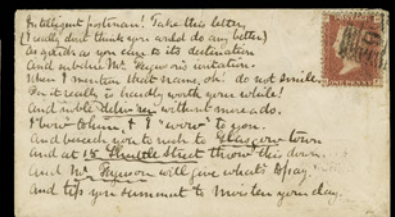 Intelligent postman! Take this letter,
(I really don't think you could do any better)
As quick as you can to its destination
And Mr. Ferguson's
When I mention that name, oh! do not smile.
For it really is hardly worth your while!
And nible deliver without more ado.
I "bow" to him, & I "wow" to you.
And beseech you to rush to Glasgow town
And at 15 Shuttle Street throw this down.
And Mr. Ferguson will give what's to pay
And tip you summut to moisten your clay.
ONE PENNY